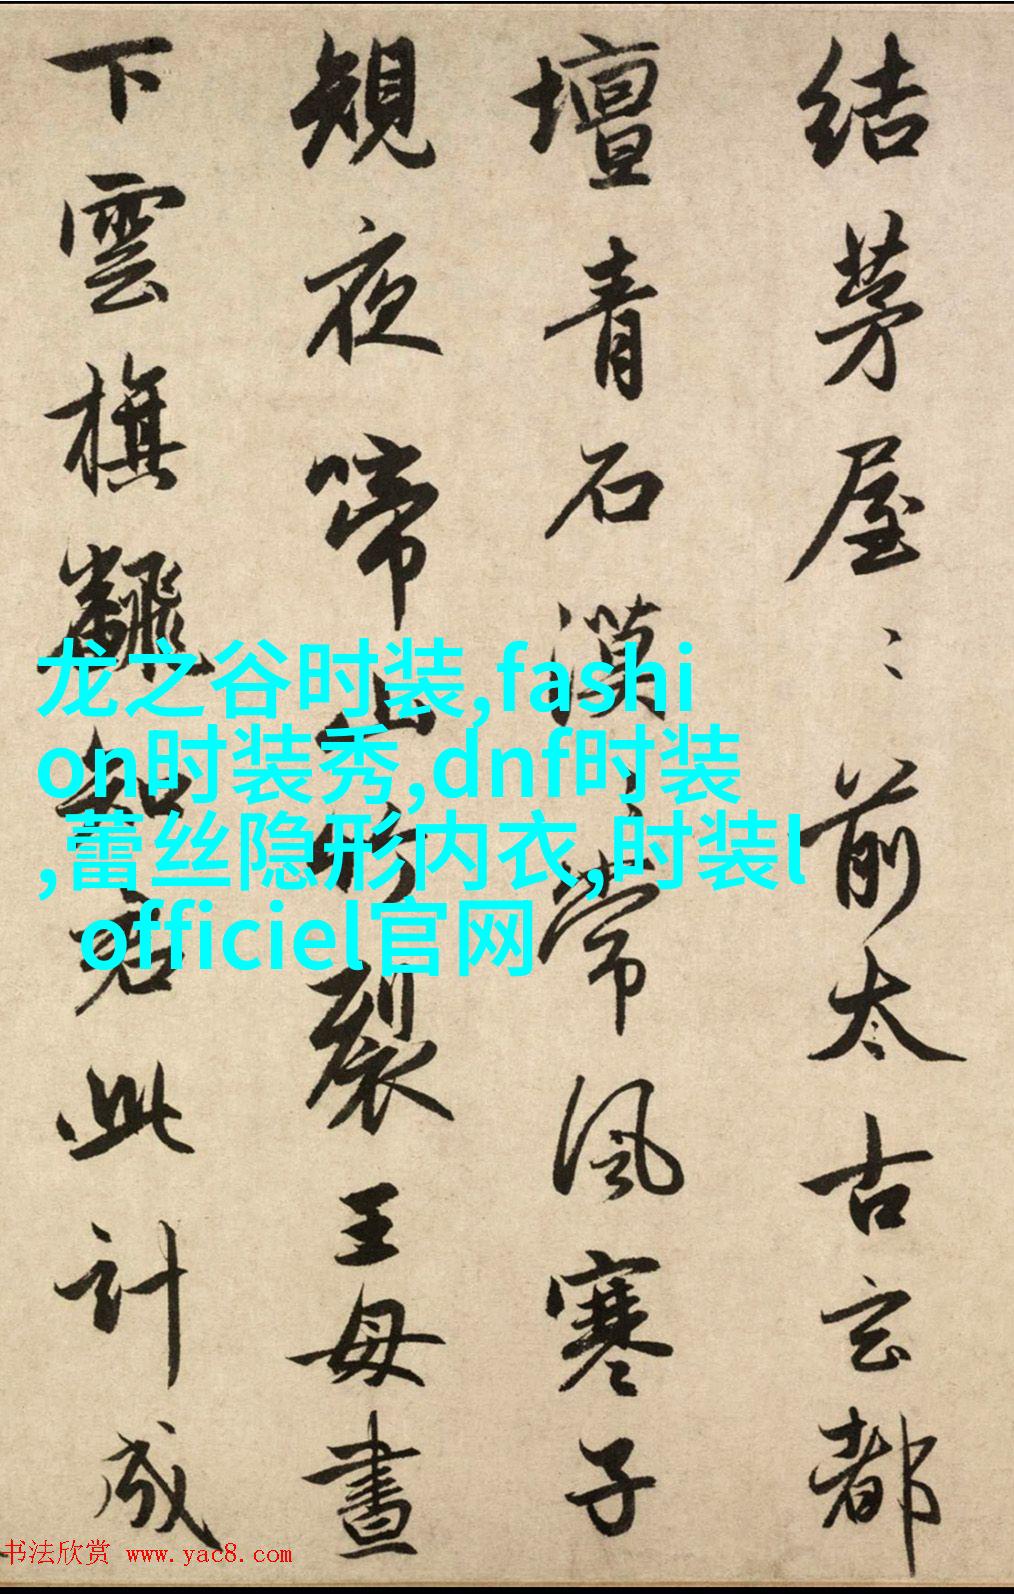 結茅屋〻前太古玄都
壇青石漠〻常風寒子
規夜啼山竹裂王母晝
下雲旗飜知君此計成
龙之谷时装,fashi
on时装秀,dnf时装
,蕾丝隐形内衣,时装l
officiel官网
书法欣赏 www.yac8.com